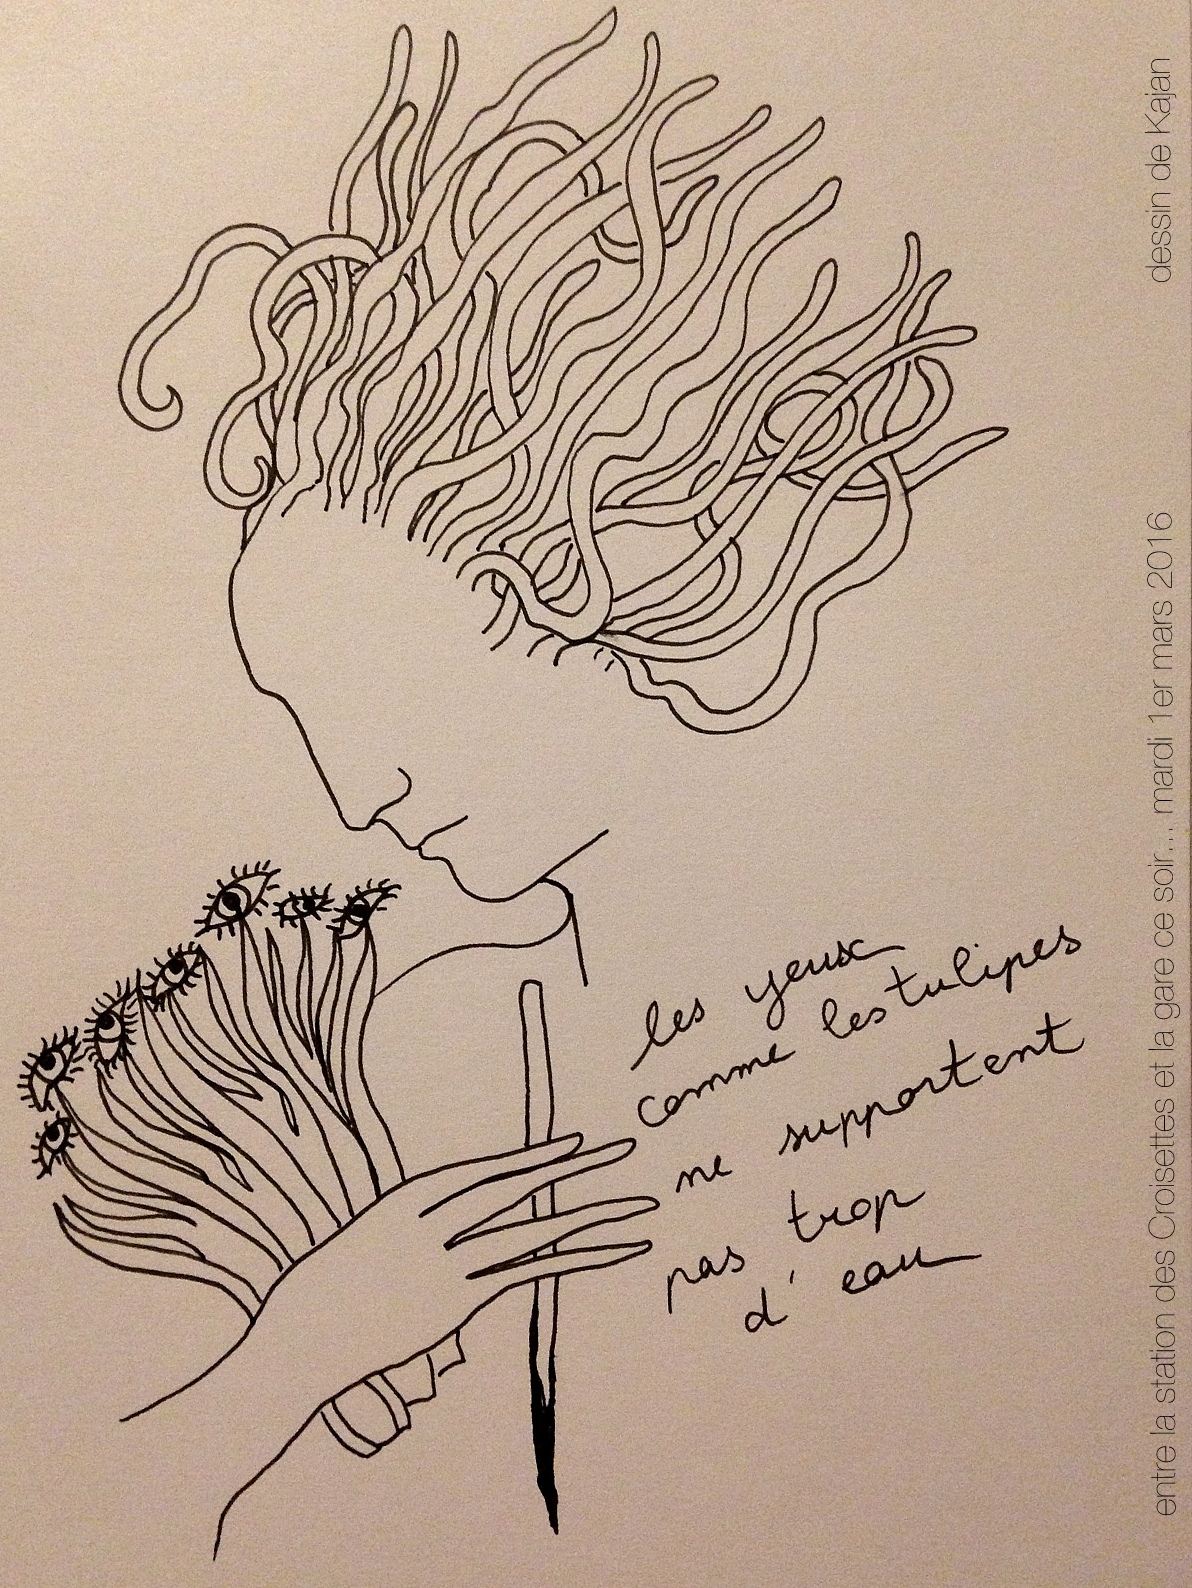 les yeux
comme les tulipes
ne supportent
pas trop
d'eau
entre la station des Croisettes et la gare ce soir... mardi 1er mars 2016
dessin de Kajan